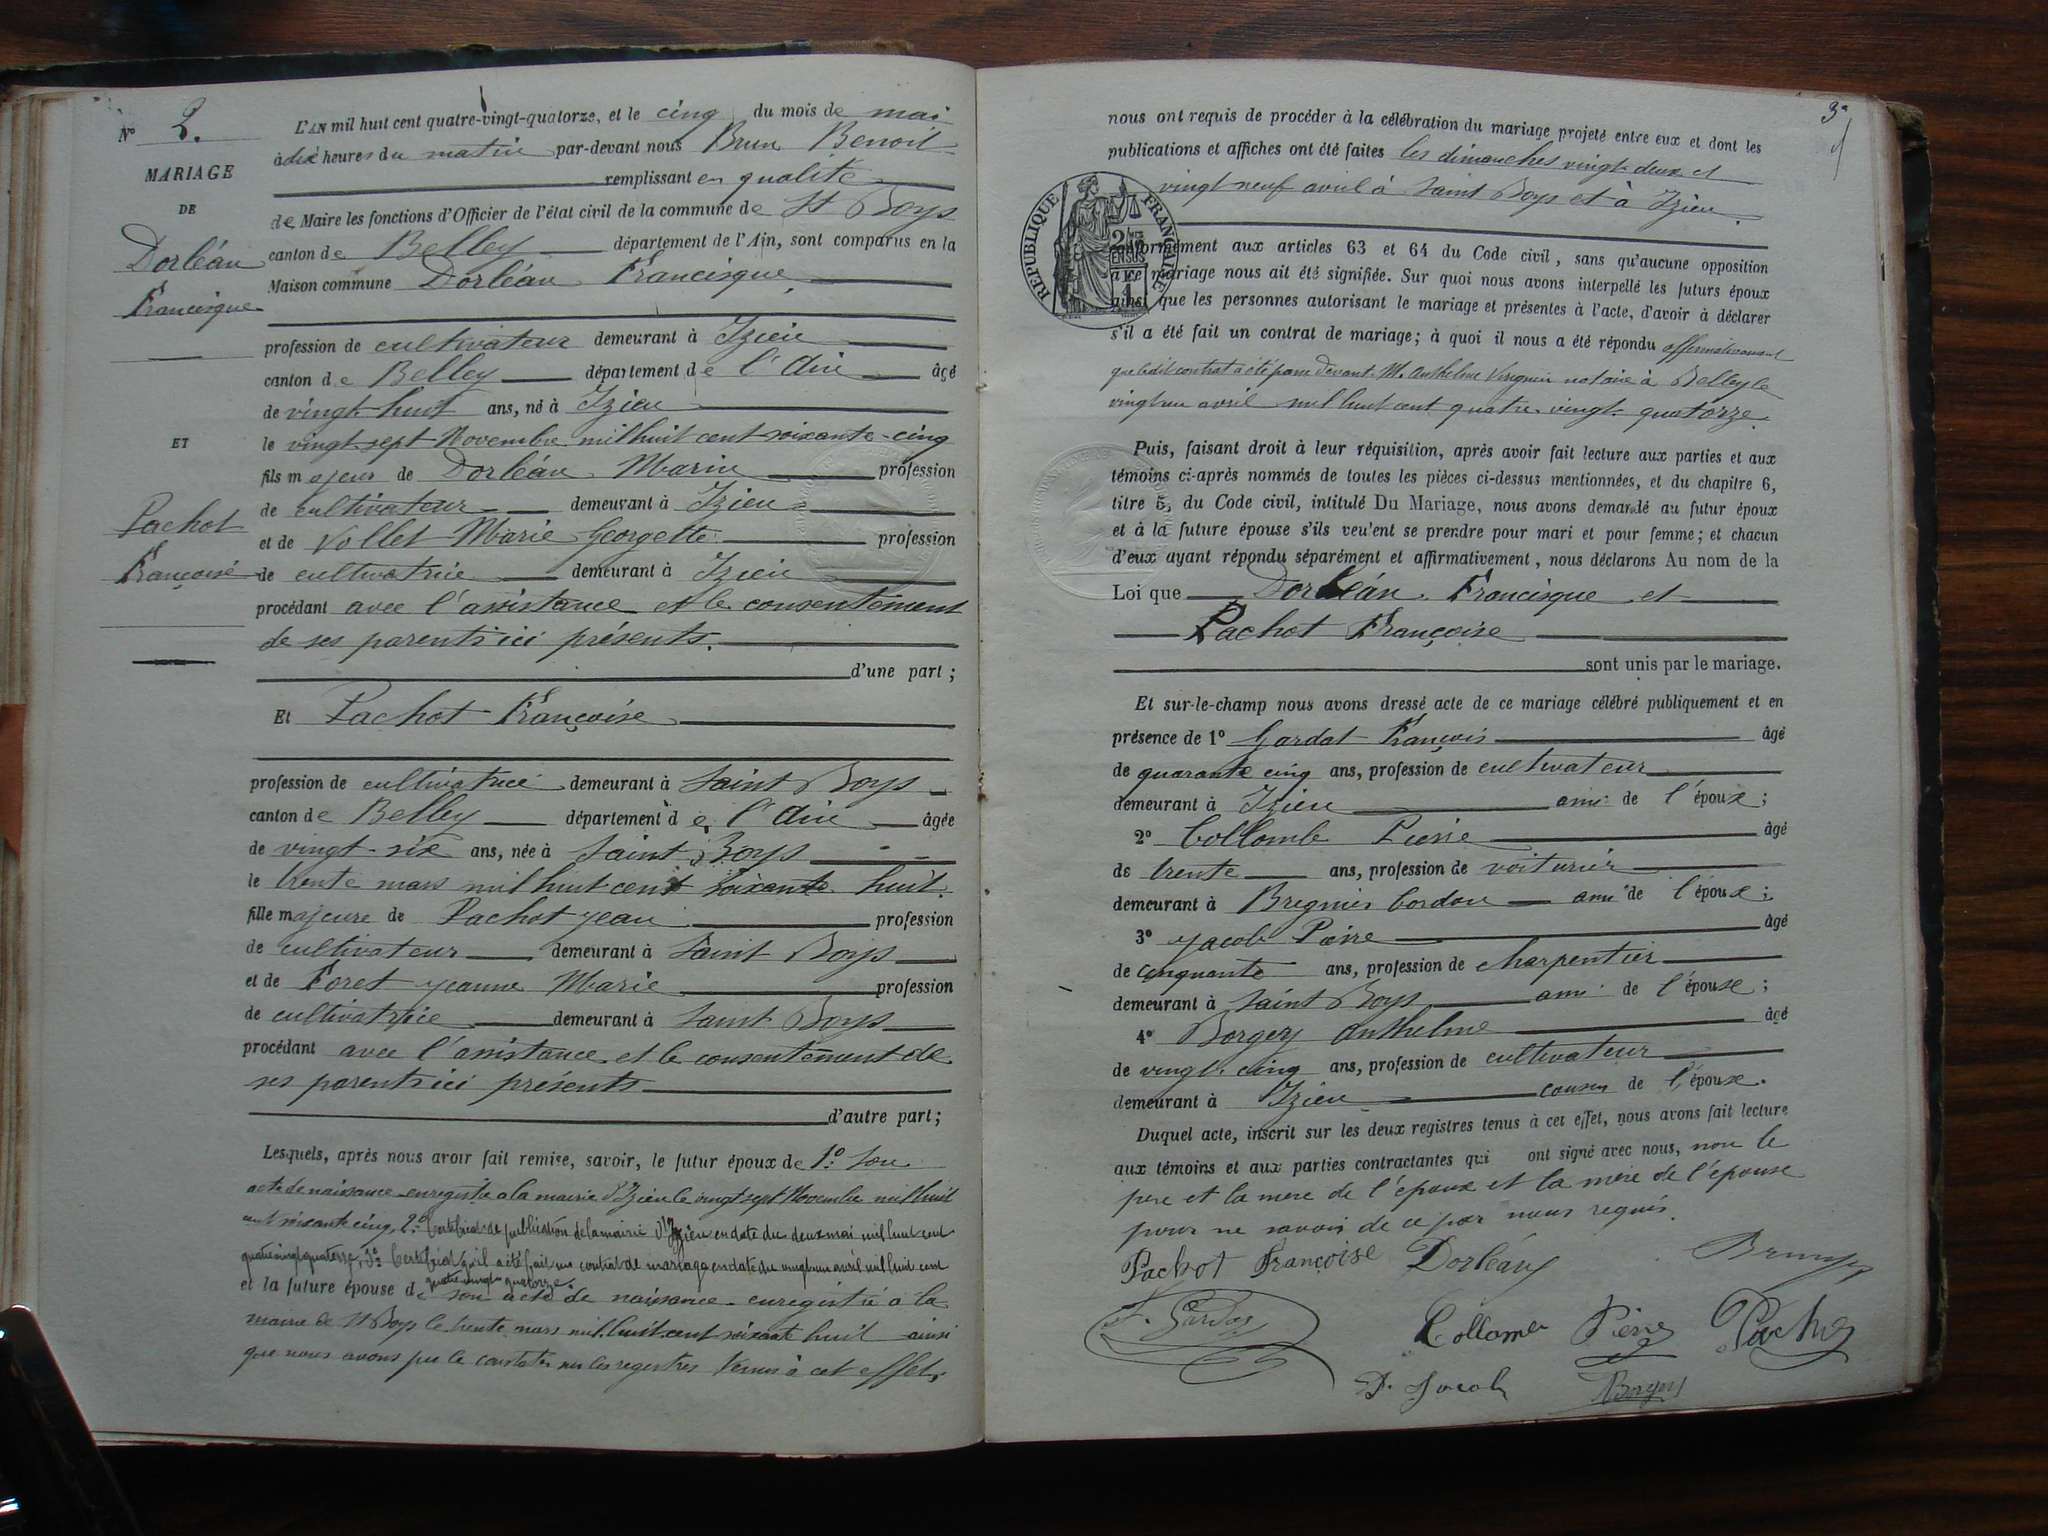 N° 2.
MARIAGE
DE
Dorléan
Francisque
ET
Pachot
Françoise
L'AN mil huit cent quatre-vingt-quatorze, et le cinq du mois de mai
à dix heures du matin par-devant nous Brun Benoit
remplissant en qualité
de Maire les fonctions d'Officier de l'état civil de la commune de St Boys
canton de Belley département de l'Ain, sont comparus en la
Maison commune Dorléan Francisque
profession de cultivateur demeurant à Izieu
canton de Belley département de l'Ain âgé
de vingt-huit ans, né à Izieu
le vingt-sept Novembre mil huit cent soixante-cinq
fils majeur de Dorléan Marin profession
de cultivateur demeurant à Izieu
et de Vollet Marie Georgette profession
de cultivatrice demeurant à Izieu
procédant avec l'assistance et le consentement
de ses parents ici présents.
d'une part;
Et Pachot Françoise
profession de cultivatrice demeurant à Saint Boys
canton de Belley département de l'Ain âgée
de vingt-six ans, née à Saint Boys
le trente mars mil huit cent soixante huit.
fille majeure de Pachot Jean profession
de cultivateur demeurant à Saint Boys
et de Foret Jeanne Marie profession
de cultivatrice demeurant à Saint Boys
procédant avec l'assistance et le consentement de
ses parents ici présents
d'autre part;
Lesquels, après nous avoir fait remise, savoir, le futur époux de 1° Son
acte de naissance enregistré a la mairie d'Izieu le vingt sept Novembre mil huit
cent soixante cinq, 2° Certificat de publication de la mairie d'Izieu en date du deux mai mil huit cent
quatre vingt quatorze, 3° Certificat qu'il a été fait un contrat de mariage en date du vingt un avril mil huit cent
quatre vingt quatorze.
et la future épouse de son acte de naissance enregistré a la
mairie de St Boys le trente mars mil huit cent soixante huit ainsi
que nous avons pu le constater sur les registres tenus à cet effet.
3
nous ont requis de procéder à la célébration du mariage projeté entre eux et dont les
publications et affiches ont été faites les dimanches vingt-deux et
vingt neuf avril à Saint Boys et à Izieu.
RÉPUBLIQUE FRANÇAISE
conformément aux articles 63 et 64 du Code civil, sans qu'aucune opposition
mariage nous ait été signifiée. Sur quoi nous avons interpellé les futurs époux
ainsi que les personnes autorisant le mariage et présentes à l'acte, d'avoir à déclarer
s'il a été fait un contrat de mariage; à quoi il nous a été répondu affirmativement
que ledit contrat a été passé devant M. Anthelme notaire à Belley le
vingt un avril mil huit cent quatre-vingt-quatorze.
Puis, faisant droit à leur réquisition, après avoir fait lecture aux parties et aux
témoins ci-après nommés de toutes les pièces ci-dessus mentionnées, et du chapitre 6,
titre 5, du Code civil, intitulé Du Mariage, nous avons demandé au futur époux
et à la future épouse s'ils veulent se prendre pour mari et pour femme; et chacun
d'eux ayant répondu séparément et affirmativement, nous déclarons Au nom de la
Loi que Dorléan Francisque et
Pachot Françoise
sont unis par le mariage.
Et sur-le-champ nous avons dressé acte de ce mariage célébré publiquement et en
présence de 1° Gardat François âgé
de quarante cinq ans, profession de cultivateur
demeurant à Izieu ami de l'époux;
2° Collombe Pierre âgé
de trente ans, profession de voiturier
demeurant à Bregnier Cordon ami de l'époux;
3° Jacob Pierre âgé
de cinquante ans, profession de charpentier
demeurant à Saint Boys ami de l'épouse;
4° Borgey Anthelme âgé
de vingt-cinq ans, profession de cultivateur
demeurant à Izieu cousin de l'épouse.
Duquel acte, inscrit sur les deux registres tenus à cet effet, nous avons fait lecture
aux témoins et aux parties contractantes qui ont signé avec nous, non le
père et la mère de l'époux et la mère de l'épouse
pour ne savoir de ce par nous requis.
Pachot Françoise Dorléan Brun
F. Gardat Pierre Pachot
P. Jacob Borgey